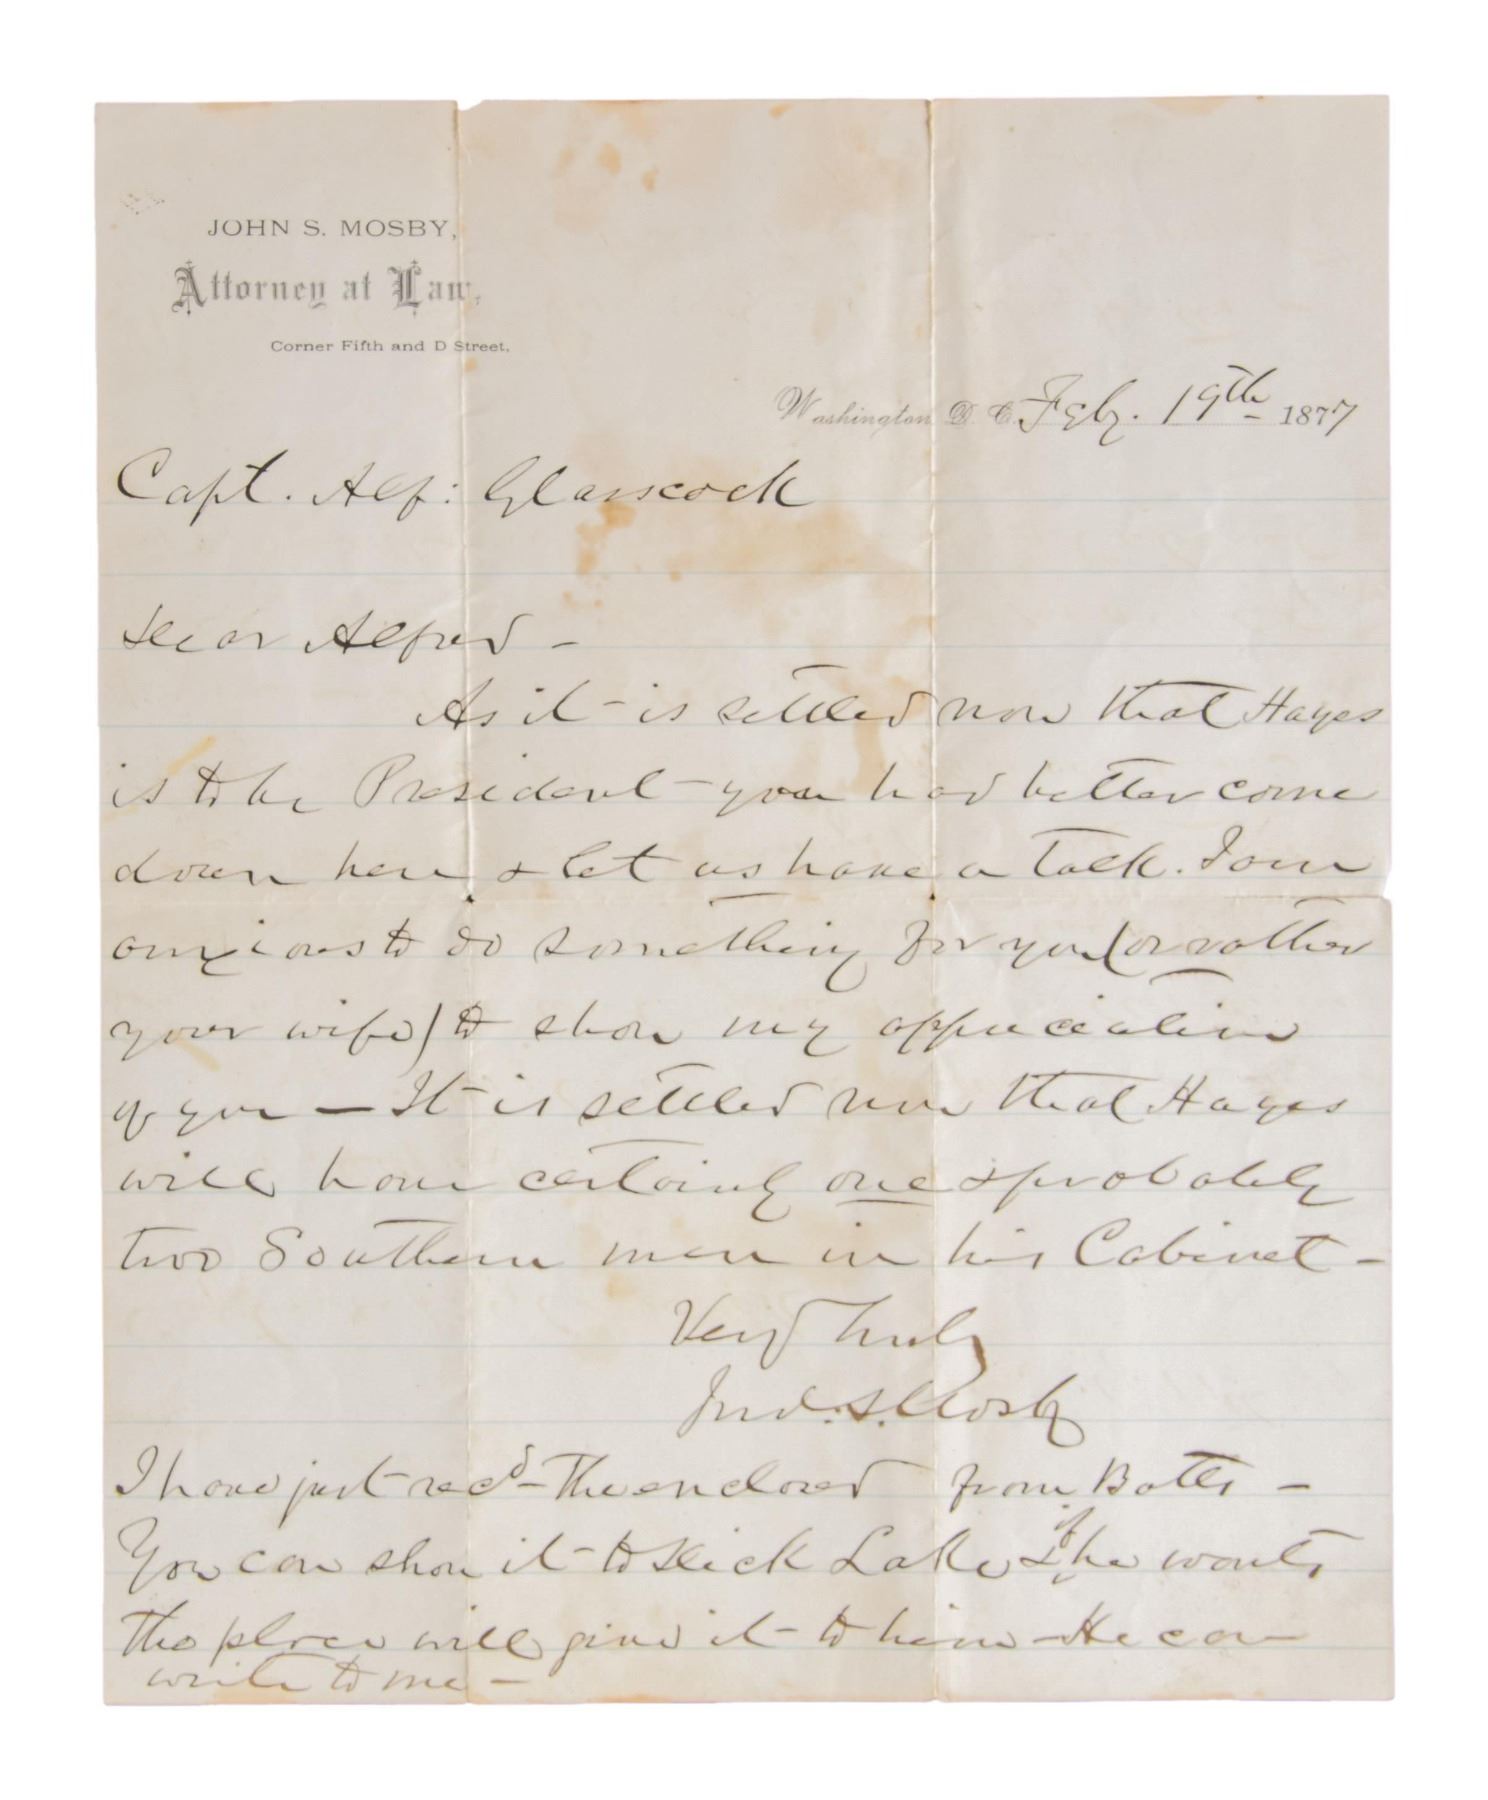 JOHN S. MOSBY,
Attorney at Law,
Corner Fifth and D Street,
Washington D. C. Feby. 19th 1877
Capt. Alf: Glasscock
Dear Alfred -
As it is settled now that Hayes
is to be President - you had better come
down here & let us have a talk. I am
anxious to do something for you (or rather
your wife) to show my appreciation
of you — It is settled now that Hayes
will have certainly one & probably
two Southern men in his Cabinet -
Very Truly
Jno. S. Mosby
I have just recd - The enclosed from Botts -
You can show it to Dick Lake & if he wants
the place will give it to him - He can
write to me -